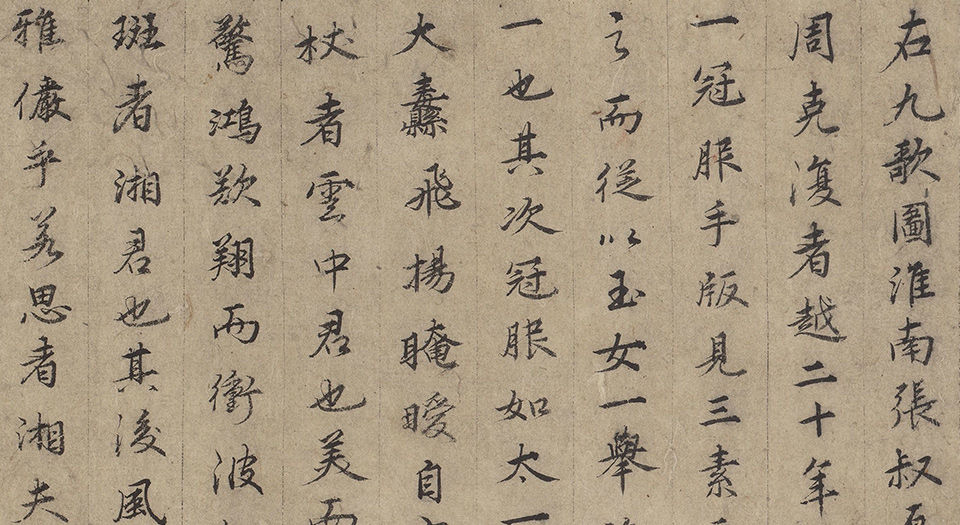 右九歌圖淮南張叔
周克復者越二十年
一冠服手版見三素
之而從以玉女一舉
一也其次冠服如太一
大纛飛揚晻曖自
杖者雲中君也美而
驚鴻欻翔而衝波
斑者湘君也其後風
雅儼乎若思者湘夫